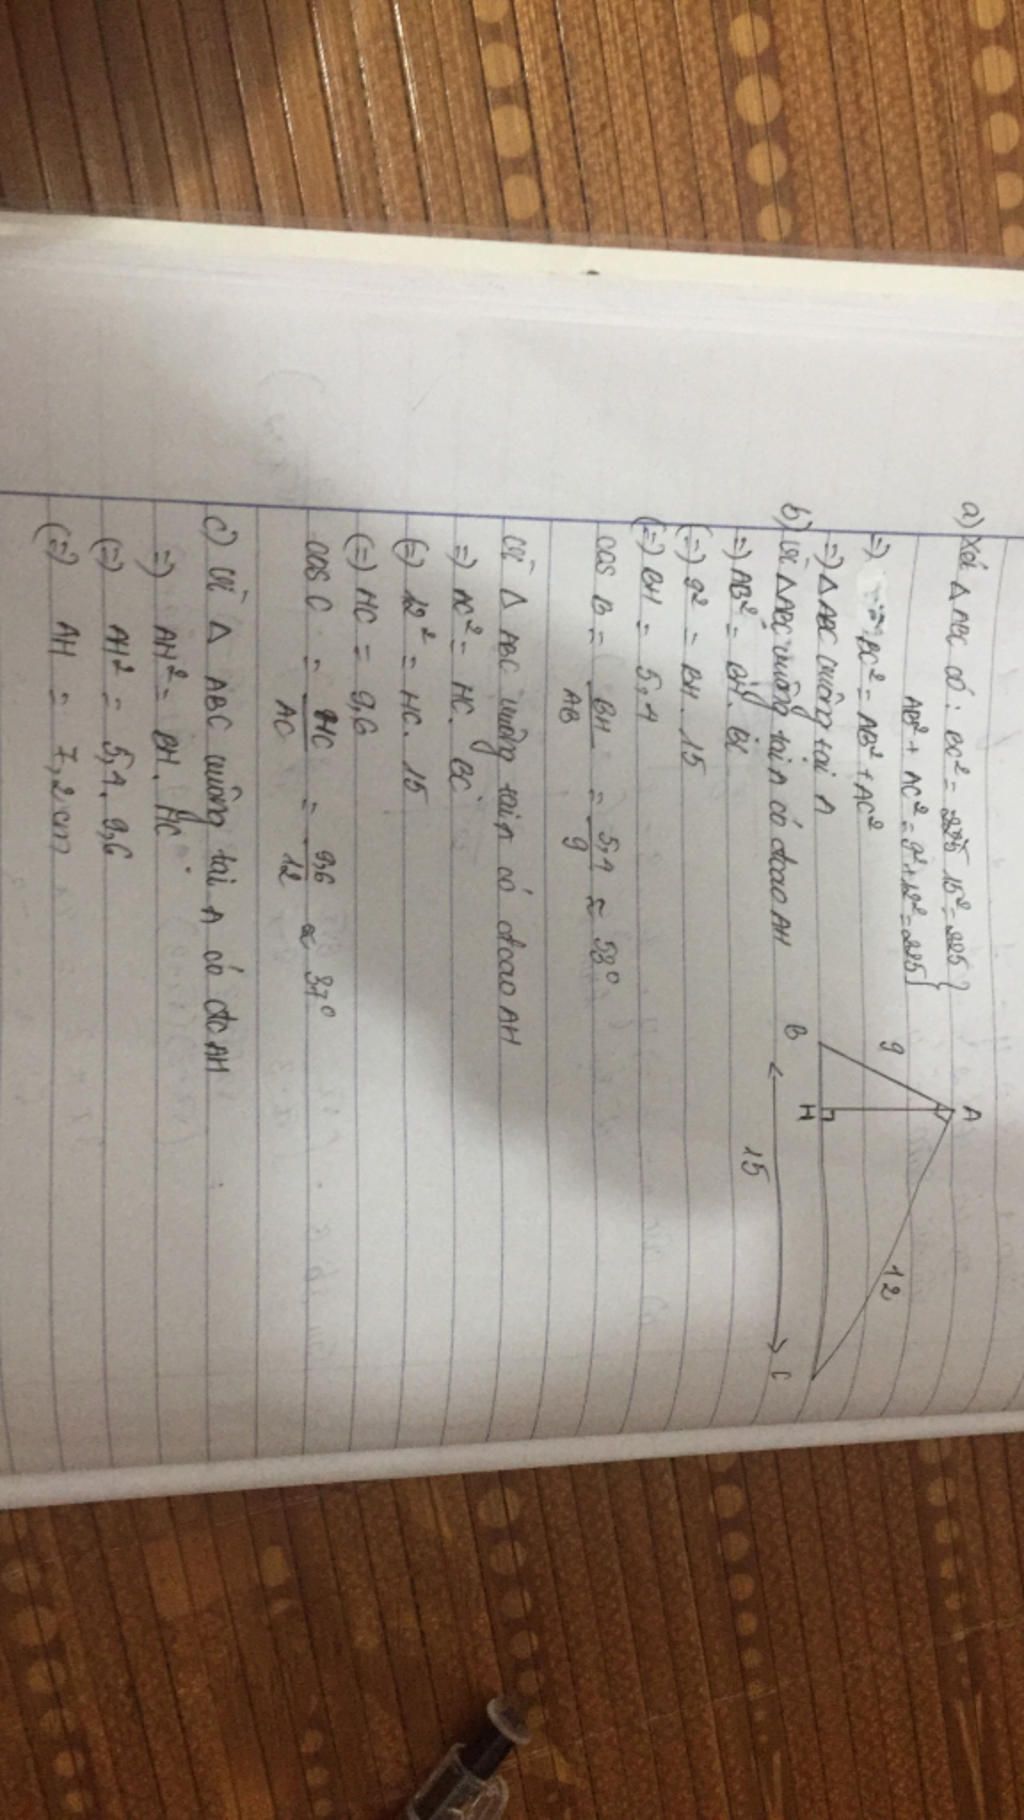 a) Xét Δ ABC có: BC² = 15² = 225 }
AB² + AC² = 9² + 12² = 225 }
=) BC² = AB² + AC²
=) Δ ABC vuông tại A
b) Vì Δ ABC vuông tại A có đcao AH
=) AB² = BH. BC
(=) 9² = BH. 15
(=) BH = 5,4
cos B = BH/AB = 5,4/9 ≈ 53°
Vì Δ ABC vuông tại A có đcao AH
=) AC² = HC. BC
(=) 12² = HC. 15
(=) HC = 9,6
cos C = HC/AC = 9,6/12 ≈ 37°
c) Vì Δ ABC vuông tại A có đc AH
=) AH² = BH. HC
(=) AH² = 5,4. 9,6
(=) AH = 7,2 cm
A
9
12
B
H
C
15